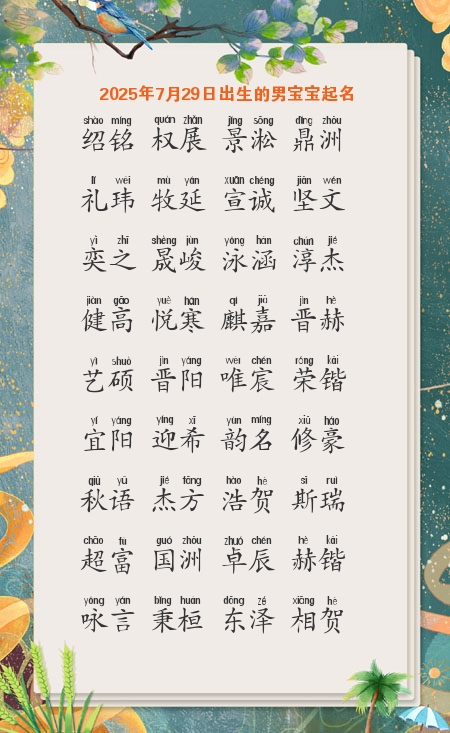 2025年7月29日出生的男宝宝起名
shào míng quán zhǎn jǐng sōng dǐng zhōu
绍铭 权展 景淞 鼎洲
lǐ wěi mù yán xuān chéng jiān wén
礼玮 牧延 宣诚 坚文
yì zhī shèng jùn yǒng hán chún jié
奕之 晟峻 泳涵 淳杰
jiàn gāo yuè hán qí jiā jìn hè
健高 悦寒 麒嘉 晋赫
yì shuò jìn yáng wéi chén róng kǎi
艺硕 晋阳 唯宸 荣锴
yí yáng yíng xī yùn míng xiū háo
宜阳 迎希 韵名 修豪
qiū yǔ jié fāng hào hè sī ruì
秋语 杰方 浩贺 斯瑞
chāo fù guó zhōu zhuó chén hè kǎi
超富 国洲 卓辰 赫锴
yǒng yán bǐng huán dōng zé xiāng hè
咏言 秉桓 东泽 相贺